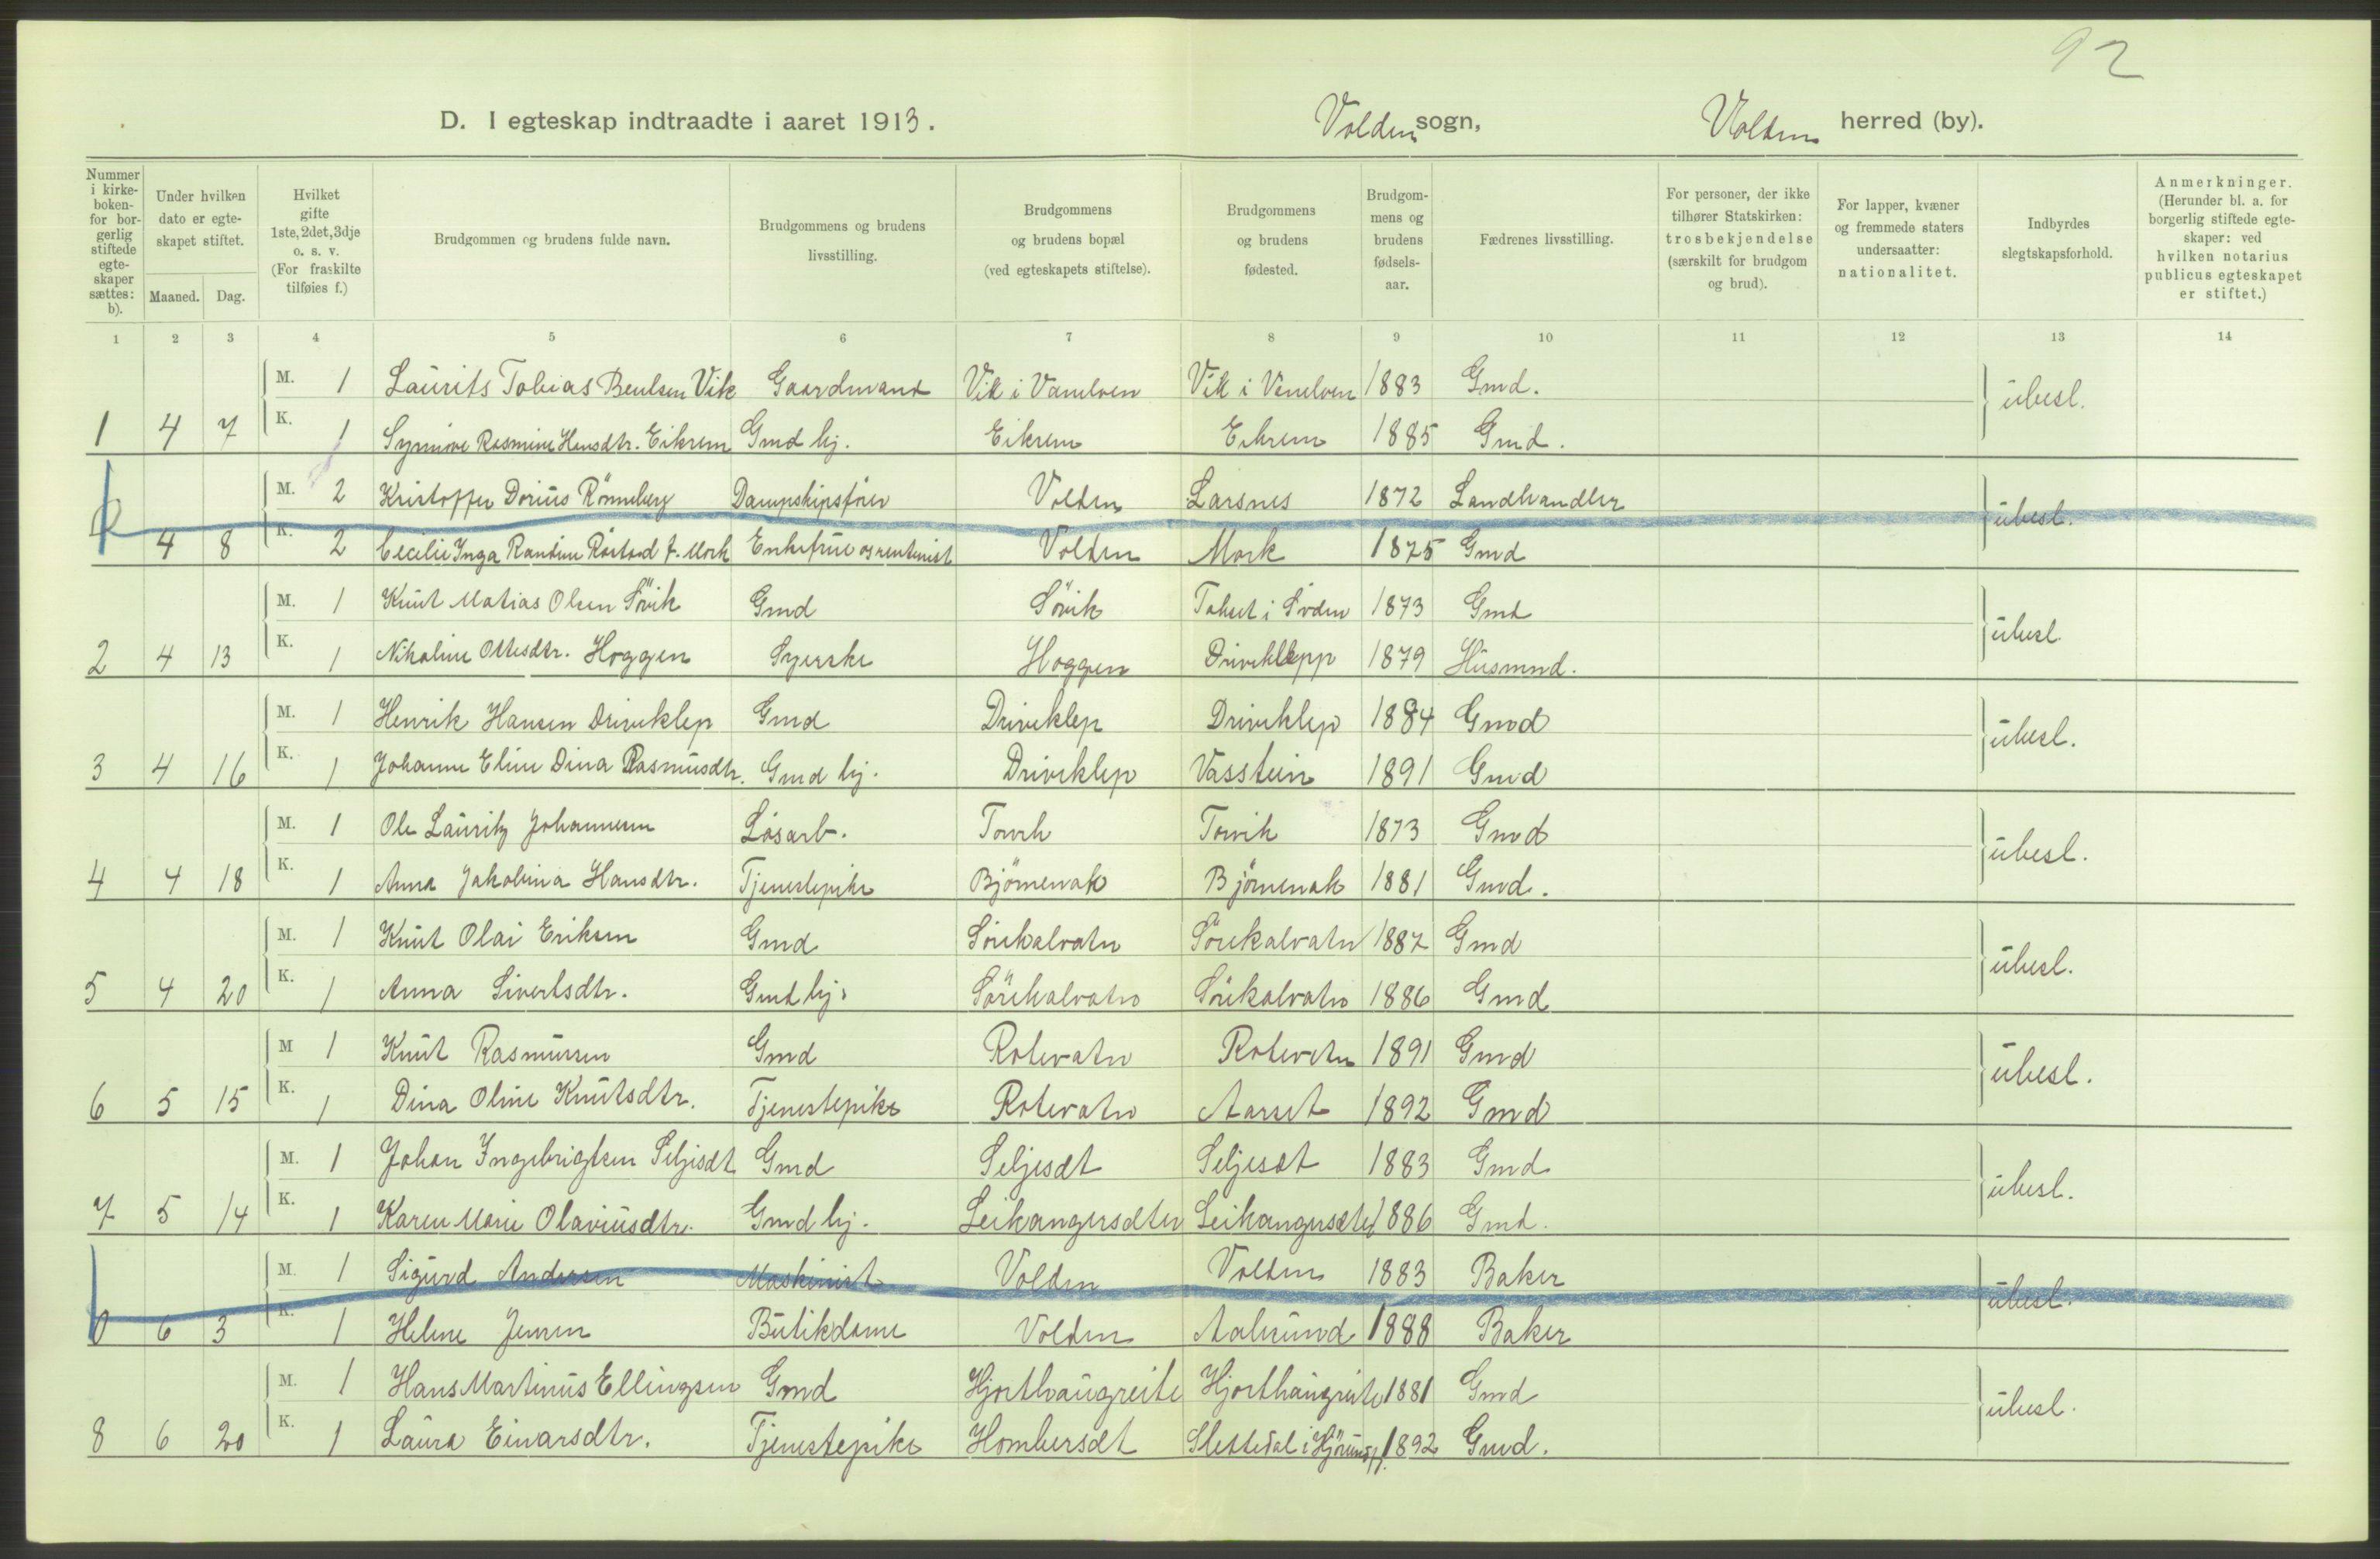 92
D. I egteskap indtraadte i aaret 1913. Volden sogn, Volden herred (by).
Nummer i kirke-boken- for bor-gerlig stiftede egte-skaper sættes: b).
Under hvilken dato er egte-skapet stiftet.
Maaned. Dag.
Hvilket gifte 1ste, 2det, 3dje o. s. v. (For fraskilte tilføies f.)
Brudgommen og brudens fulde navn.
Brudgommens og brudens livsstilling.
Brudgommens og brudens bopæl (ved egteskapets stiftelse).
Brudgommens og brudens fødested.
Brudgom-mens og brudens fødsels-aar.
Fædrenes livsstilling.
For personer, der ikke tilhører Statskirken: trosbekjendelse (særskilt for brudgom og brud).
For lapper, kvæner og fremmede staters undersaatter: nationalitet.
Indbyrdes slegtskapsforhold.
Anmerkninger. (Herunder bl. a. for borgerlig stiftede egte-skaper: ved hvilken notarius publicus egteskapet er stiftet.)
1 2 3 4 5 6 7 8 9 10 11 12 13 14
M. 1 Laurits Tobias Bentsen Vik Gaardmand Vik i Vanelven Vik i Vanelven 1883 Gmd. ubesl.
1 4 7 K. 1 Synnøve Rasmine Hansdtr. Eikrem Gmd hj. Eikrem Eikrem 1885 Gmd.
M. 2 Kristoffer Dorius Rönneberg Dampskipsfører Volden Larsnes 1872 Landhandler ubesl.
4 8 K. 2 Cecilie Inga Randine Röstad f. Mork Enkefrue og rentenist Volden Mork 1875 Gmd
M. 1 Knut Matias Olsen Sövik Gmd Sövik i 1873 Gmd ubesl
2 4 13 K. 1 Nikoline Ottesdtr. Hoggen Syerske Hoggen Driveklepp 1879 Husmnd.
M. 1 Henrik Hansen Driveklep Gmd Driveklep Driveklep 1884 Gmd ubesl.
3 4 16 K. 1 Johanne Eline Dina Rasmusdtr. Gmd hj. Driveklep Vasstein 1891 Gmd
M. 1 Ole Lauritz Johannesen Løsarb. Torvik Torvik 1873 Gmd ubesl.
4 4 18 K. 1 Anna Jakobina Hansdtr. Tjenestepike Björnenak Björnenak 1881 Gmd.
M. 1 Knut Olai Eriksen Gmd Sörekalvatn Sörekalvatn 1887 Gmd ubesl.
5 4 20 K. 1 Anna Sivertsdtr. Gmd hj. Sörekalvatn Sörekalvatn 1886 Gmd
M 1 Knut Rasmussen Gmd Rotevatn Rotevatn 1891 Gmd ubesl.
6 5 15 K. 1 Dina Oline Knutsdtr. Tjenestepike Rotevatn Aarset 1892 Gmd
M. 1 Johan Ingebrigtsen Seljesæt Gmd Seljesæt Seljesæt 1883 Gmd ubesl.
7 5 14 K. 1 Karen Marie Olaviusdtr. Gmd hj. Leikangersæter Leikangersæter 1886 Gmd.
M. 1 Sigurd Andersen Maskinist Volden Volden 1883 Baker ubesl.
0 6 3 K. 1 Helene Jensen Butikdame Volden Aalesund 1888 Baker
M. 1 Hans Martinus Ellingsen Gmd Hjorthaugreite Hjorthaugreite 1881 Gmd ubesl.
8 6 20 K. 1 Laura Einarsdtr. Tjenestepike Hombersæt Slettedal i 1892 Gmd.